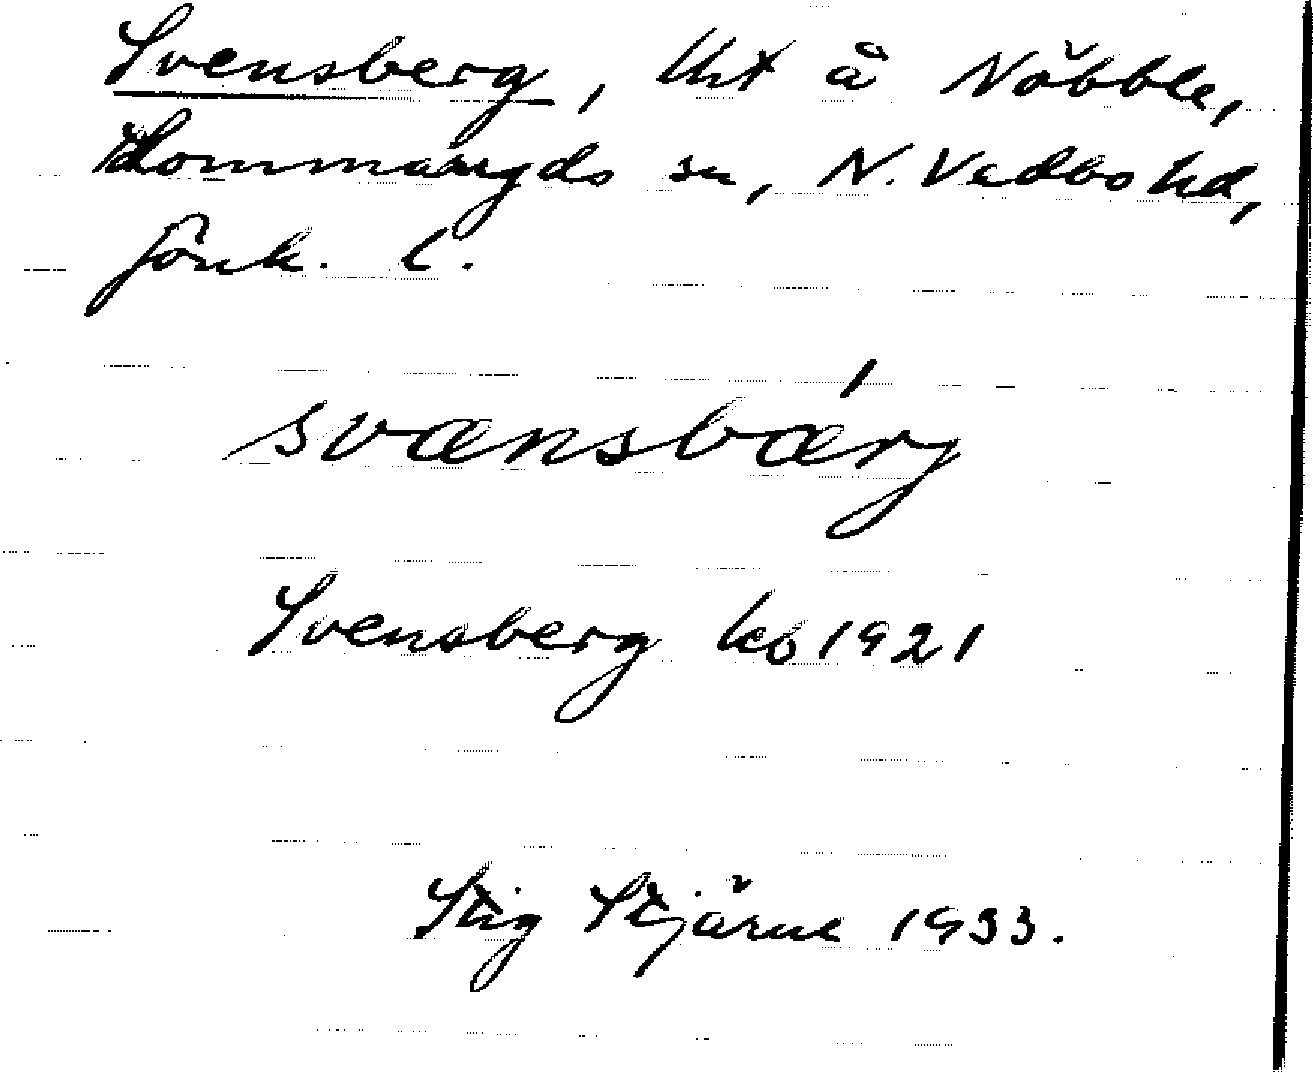 Svensberg, tht å Näbble,
Hommaryds sn, N. Vedbo hd,
Jönk. l.
svænsbærj
Svensberg kb 1921
Stig Stjärne 1933.